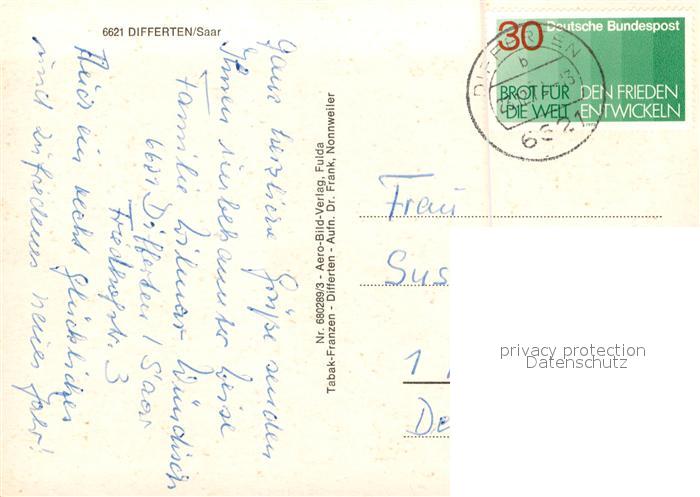 6621 DIFFERTEN/Saar
Ganz herzliche Grüße senden
Ihnen unbekannter Weise
Familie Wilmar Wündisch
6621 Differten / Saar
Friedhofstr. 3
Auch ein recht glückliches
und zufriedenes neues Jahr!
Nr. 680289/3 - Aero-Bild-Verlag, Fulda
Tabak-Franzen - Differten - Aufn. Dr. Frank, Nonnweiler
30 Deutsche Bundespost
BROT FÜR DEN FRIEDEN
DIE WELT ENTWICKELN
DIFFERTEN
b
6621
Frau
Sus
1
De
privacy protection
Datenschutz